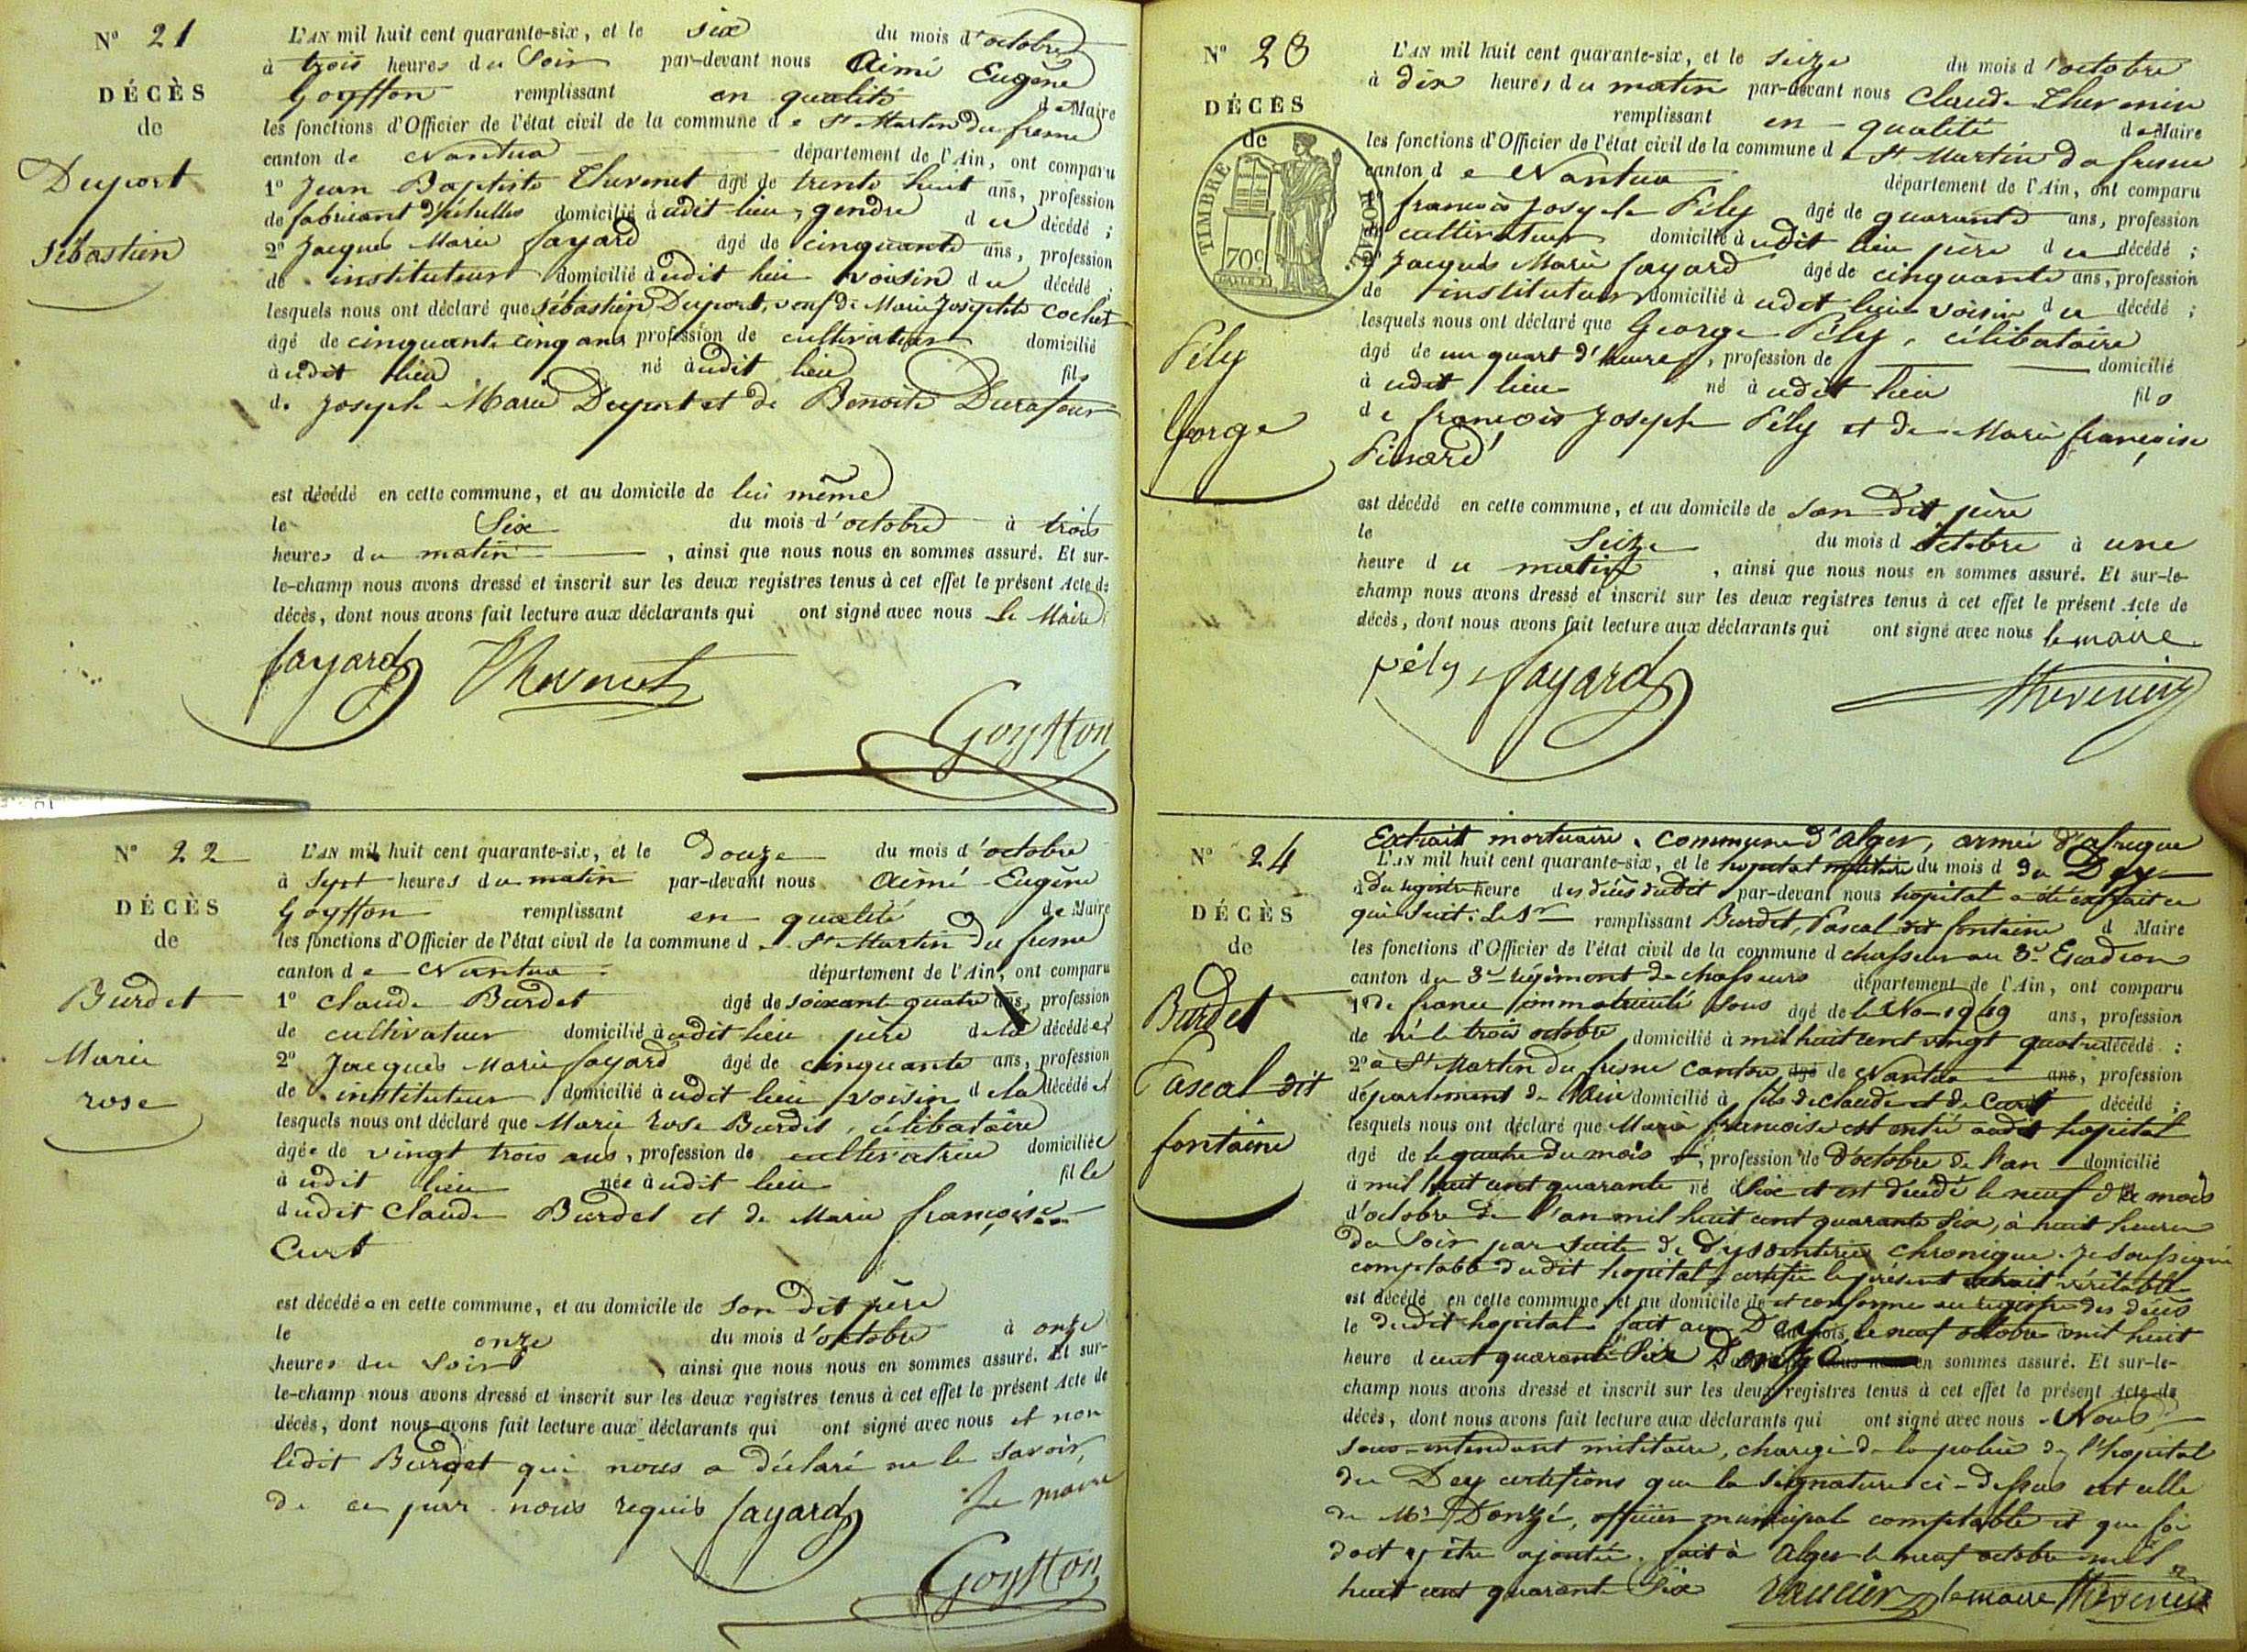 N° 21
DÉCÈS
de
Duport
Sébastien
L'AN mil huit cent quarante-six, et le six du mois d'octobre
à trois heures du Soir par-devant nous Aimé Eugène
Goyffon remplissant en qualité de Maire
les fonctions d'Officier de l'état civil de la commune de St Martin du fresne
canton de Nantua département de l'Ain, ont comparu
1° Jean Baptiste Thevenet âgé de trente huit ans, profession
de fabricant d'échelles domicilié audit lieu, gendre du décédé ;
2° Jacques Marie fayard âgé de cinquante ans, profession
de instituteur domicilié audit lieu voisin du décédé ;
lesquels nous ont déclaré que Sébastien Duport, veuf de Marie Josephte Cochet
âgé de cinquante cinq ans profession de cultivateur domicilié
audit lieu né audit lieu fils
de Joseph Marie Duport et de Benoite Durafour
est décédé en cette commune, et au domicile de lui même
le Six du mois d'octobre à trois
heures du matin , ainsi que nous nous en sommes assuré. Et sur-
le-champ nous avons dressé et inscrit sur les deux registres tenus à cet effet le présent Acte de
décès, dont nous avons fait lecture aux déclarants qui ont signé avec nous Le Maire
fayard Thevenet
Goyffon
N° 22
DÉCÈS
de
Burdet
Marie
rose
L'AN mil huit cent quarante-six, et le douze du mois d'octobre
à sept heures du matin par-devant nous Aimé Eugène
Goyffon remplissant en qualité de Maire
les fonctions d'Officier de l'état civil de la commune de St Martin du fresne
canton de Nantua département de l'Ain, ont comparu
1° Claude Burdet âgé de soixante quatre ans, profession
de cultivateur domicilié audit lieu père de la décédée
2° Jacques Marie fayard âgé de cinquante ans, profession
de instituteur domicilié audit lieu voisin de la décédée
lesquels nous ont déclaré que Marie rose Burdet, célibataire
âgée de vingt trois ans, profession de cultivatrice domiciliée
audit lieu née audit lieu fille
dudit Claude Burdet et de Marie françoise
Curt
est décédée en cette commune, et au domicile de son dit père
le onze du mois d'octobre à onze
heures du Soir ainsi que nous nous en sommes assuré. Et sur-
le-champ nous avons dressé et inscrit sur les deux registres tenus à cet effet le présent Acte de
décès, dont nous avons fait lecture aux déclarants qui ont signé avec nous et non
ledit Burdet qui nous a déclaré ne le savoir,
de ce par nous requis fayard Le maire
Goyffon
N° 23
DÉCÈS
de
TIMBRE ROYAL
70c
Pély
George
L'AN mil huit cent quarante-six, et le seize du mois d'octobre
à dix heures du matin par-devant nous Claude Thevenin
remplissant en qualité de Maire
les fonctions d'Officier de l'état civil de la commune de St Martin du fresne
canton de Nantua département de l'Ain, ont comparu
françois Joseph Pély âgé de quarante ans, profession
cultivateur domicilié audit lieu père du décédé ;
Jacques Marie fayard âgé de cinquante ans, profession
de instituteur domicilié audit lieu voisin du décédé ;
lesquels nous ont déclaré que George Pély, célibataire
âgé de un quart d'heure, profession de domicilié
audit lieu né audit lieu fils
de françois Joseph Pély et de Marie françoise
Pinard
est décédé en cette commune, et au domicile de son dit père
le Seize du mois d'octobre à une
heure du matin , ainsi que nous nous en sommes assuré. Et sur-le-
champ nous avons dressé et inscrit sur les deux registres tenus à cet effet le présent Acte de
décès, dont nous avons fait lecture aux déclarants qui ont signé avec nous le maire
pély fayard Thevenin
N° 24
DÉCÈS
de
Burdet
Pascal dit
fontaine
Extrait mortuaire. Commune d'Alger, armée d'afrique
L'AN mil huit cent quarante-six, et le hopital militaire du mois d du Dey
à du registre heure des décès dudit par-devant nous hopital a été extrait ce
qui suit : Le Sr remplissant Burdet, Pascal dit fontaine d Maire
les fonctions d'Officier de l'état civil de la commune d chasseur au 3e Escadron
canton du 3e régiment de chasseurs département de l'Ain, ont comparu
1° de france immatriculé sous âgé de le No 1949 ans, profession
de né le trois octobre domicilié à mil huit cent vingt quatre décédé ;
2° à St Martin du fresne canton âgé de Nantua ans, profession
département de l'Ain domicilié à fils de claude et de Curt décédé ;
lesquels nous ont déclaré que Marie francoise est entré audit hopital
âgé de le quatre du mois , profession de d'octobre de l'an domicilié
à mil huit cent quarante né à Six et est décédé le neuf du mois
d'octobre de l'an mil huit cent quarante Six, à huit heures
du Soir par suite de dyssenterie chronique. Je soussigné
comptable dudit hopital certifie le présent extrait véritable
est décédé en cette commune, et au domicile de et conforme au registre des décès
le dudit hopital fait au Dey, du mois le neuf octobre mil huit
heure d cent quarante Six Donzé en sommes assuré. Et sur-le-
champ nous avons dressé et inscrit sur les deux registres tenus à cet effet le présent Acte de
décès, dont nous avons fait lecture aux déclarants qui ont signé avec nous Nous
sous-intendant militaire, chargé de la police de l'hopital
du Dey certifions que la signature ci-dessus est celle
de Mr Donzé, officier municipal comptable et que foi
doit y être ajoutée. fait à Alger le neuf octobre mil
huit cent quarante Six le maire Thevenin